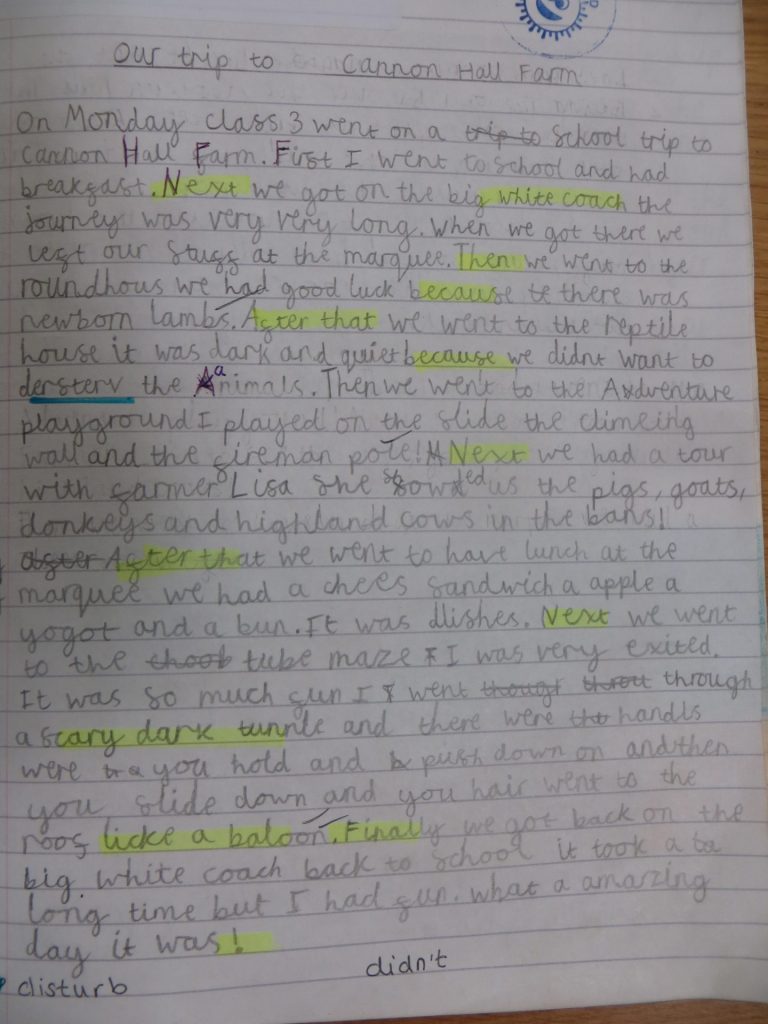 Our trip to Cannon Hall Farm
On Monday class 3 went on a trip to School trip to
Cannon Hall Farm. First I went to school and had
breakfast. Next we got on the big white coach the
journey was very very long. When we got there we
left our stuff at the marquee. Then we went to the
roundhous we had good luck because te there was
newborn lambs. After that we went to the reptile
house it was dark and quiet because we didnt want to
dersterv the animals. Then we went to the Adventure
playground I played on the slide the climeing
wall and the fireman pole! Next we had a tour
with farmer Lisa she showed us the pigs, goats,
donkeys and highland cows in the bans!
after After that we went to have lunch at the
marquee we had a chees sandwich a apple a
yogot and a bun. It was dlishes. Next we went
to the thoob tube maze I was very exited.
It was so much fun I went though throu through
a scary dark tunnle and there were tht handls
were you hold and push down on and then
you slide down and you hair went to the
roof licke a baloon. Finally we got back on the
big white coach back to school it took a ta
long time but I had fun. what a amazing
day it was!
didn't
disturb